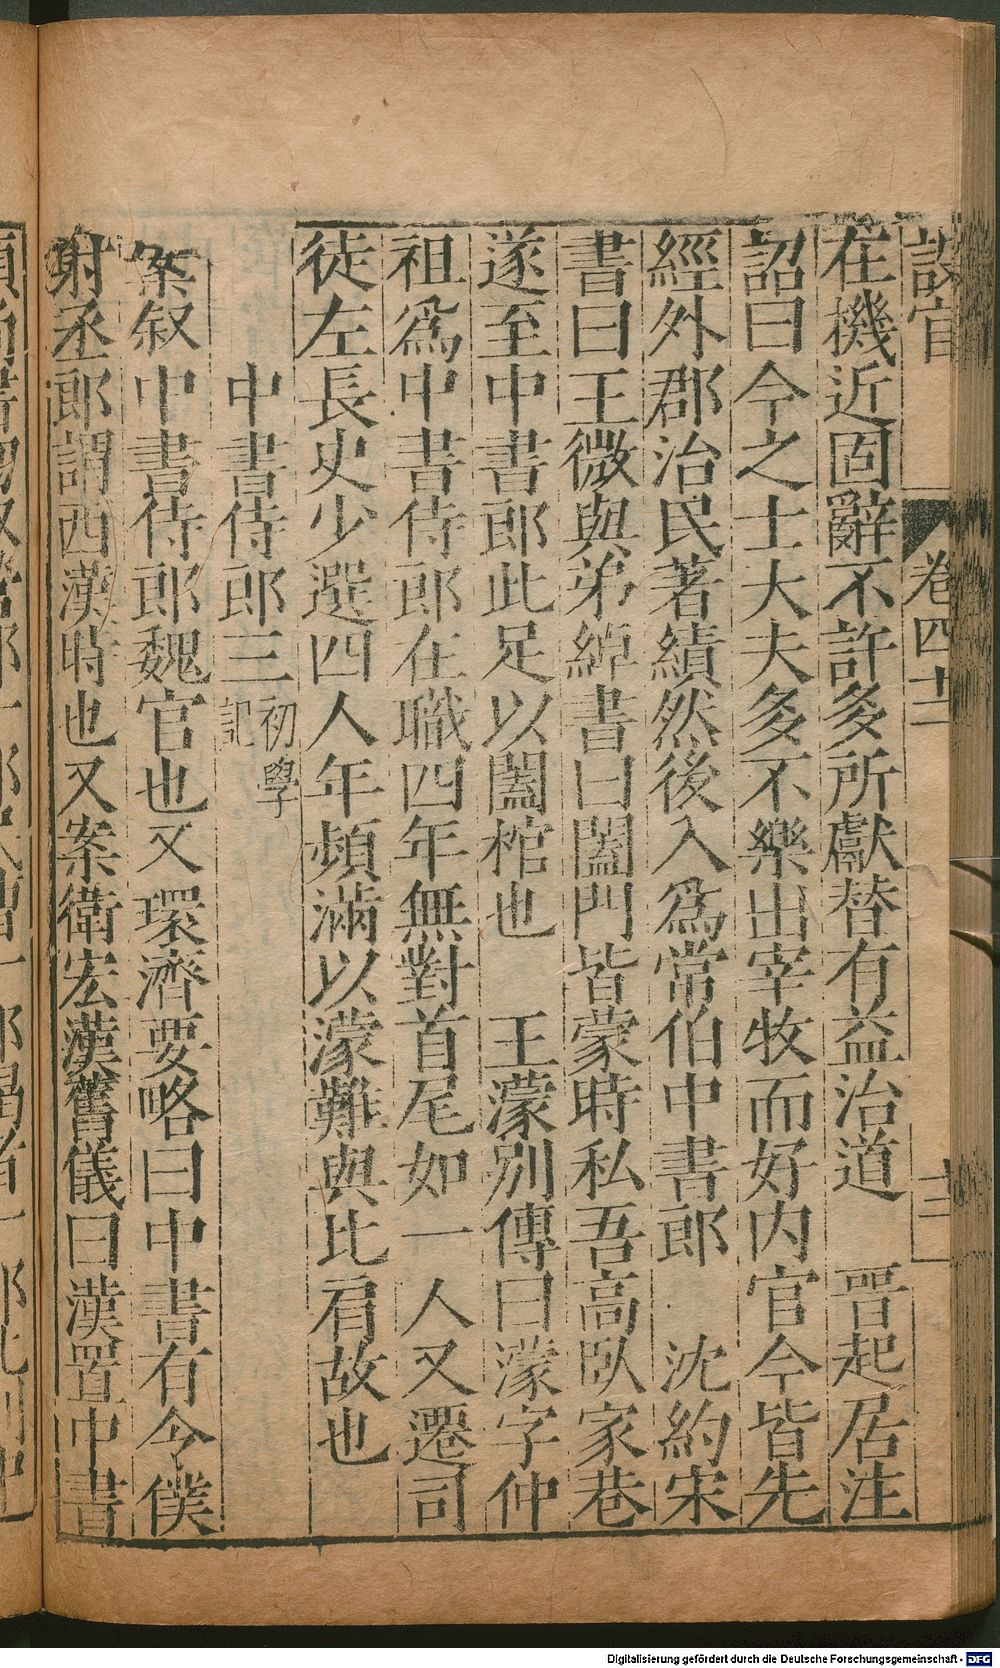 設官 卷四十二 十二
在機近固辭不許多所獻替有益治道　晉起居注
詔曰今之士大夫多不樂出宰牧而好内官今皆先
經外郡治民著績然後入爲常伯中書郎　沈約宋
書曰王微與弟綽書曰闔門皆蒙時私吾高臥家巷
遂至中書郎此足以闔棺也　王濛別傳曰濛字仲
祖爲中書侍郎在職四年無對首尾如一人又遷司
徒左長史少選四人年頻滿以濛難與比肩故也
中書侍郎三初學記
案叙中書侍郎魏官也又環濟要略曰中書有令僕
射丞郎謂西漢時也又案衛宏漢舊儀曰漢置中書
Digitalisierung gefördert durch die Deutsche Forschungsgemeinschaft - DFG